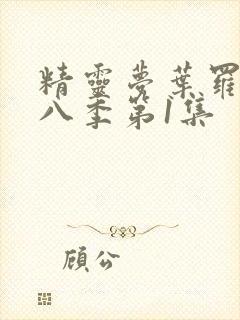 精靈夢葉羅
八季第1集
顧公